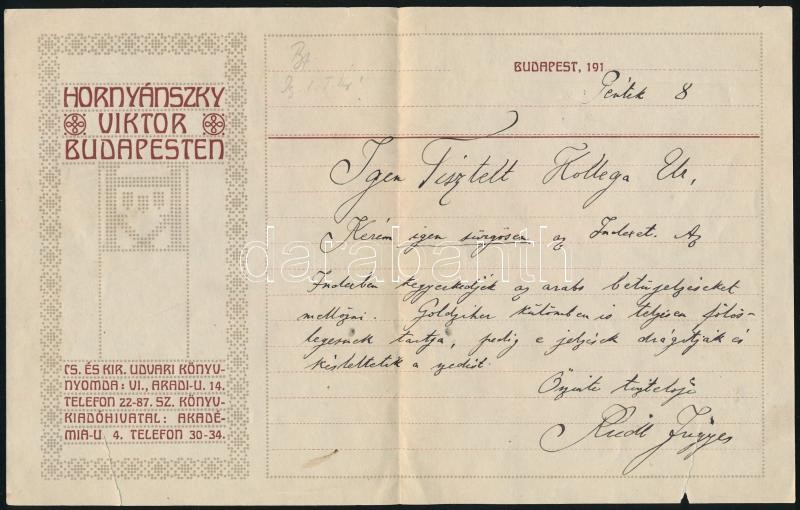 HORNYÁNSZKY
VIKTOR
BUDAPESTEN
CS. ÉS KIR. UDVARI KÖNYV-
NYOMDA: VI., ARADI-U. 14.
TELEFON 22-87. SZ. KÖNYV-
KIADÓHIVATAL: AKADÉ-
MIA-U. 4. TELEFON 30-34.
BUDAPEST, 191
Péntek 8
Igen Tisztelt Kollega Ur,
Kérem igen sürgősen az Indexet. Az
Indexben kegyeskedjék az arabs betüjelzéseket
mellőzni. Goldziher különben is teljesen fölös-
legesnek tartja, pedig e jelzések drágitják és
késleltetik a szedést.
Őszinte tisztelője
Riedl Frigyes
darabanth